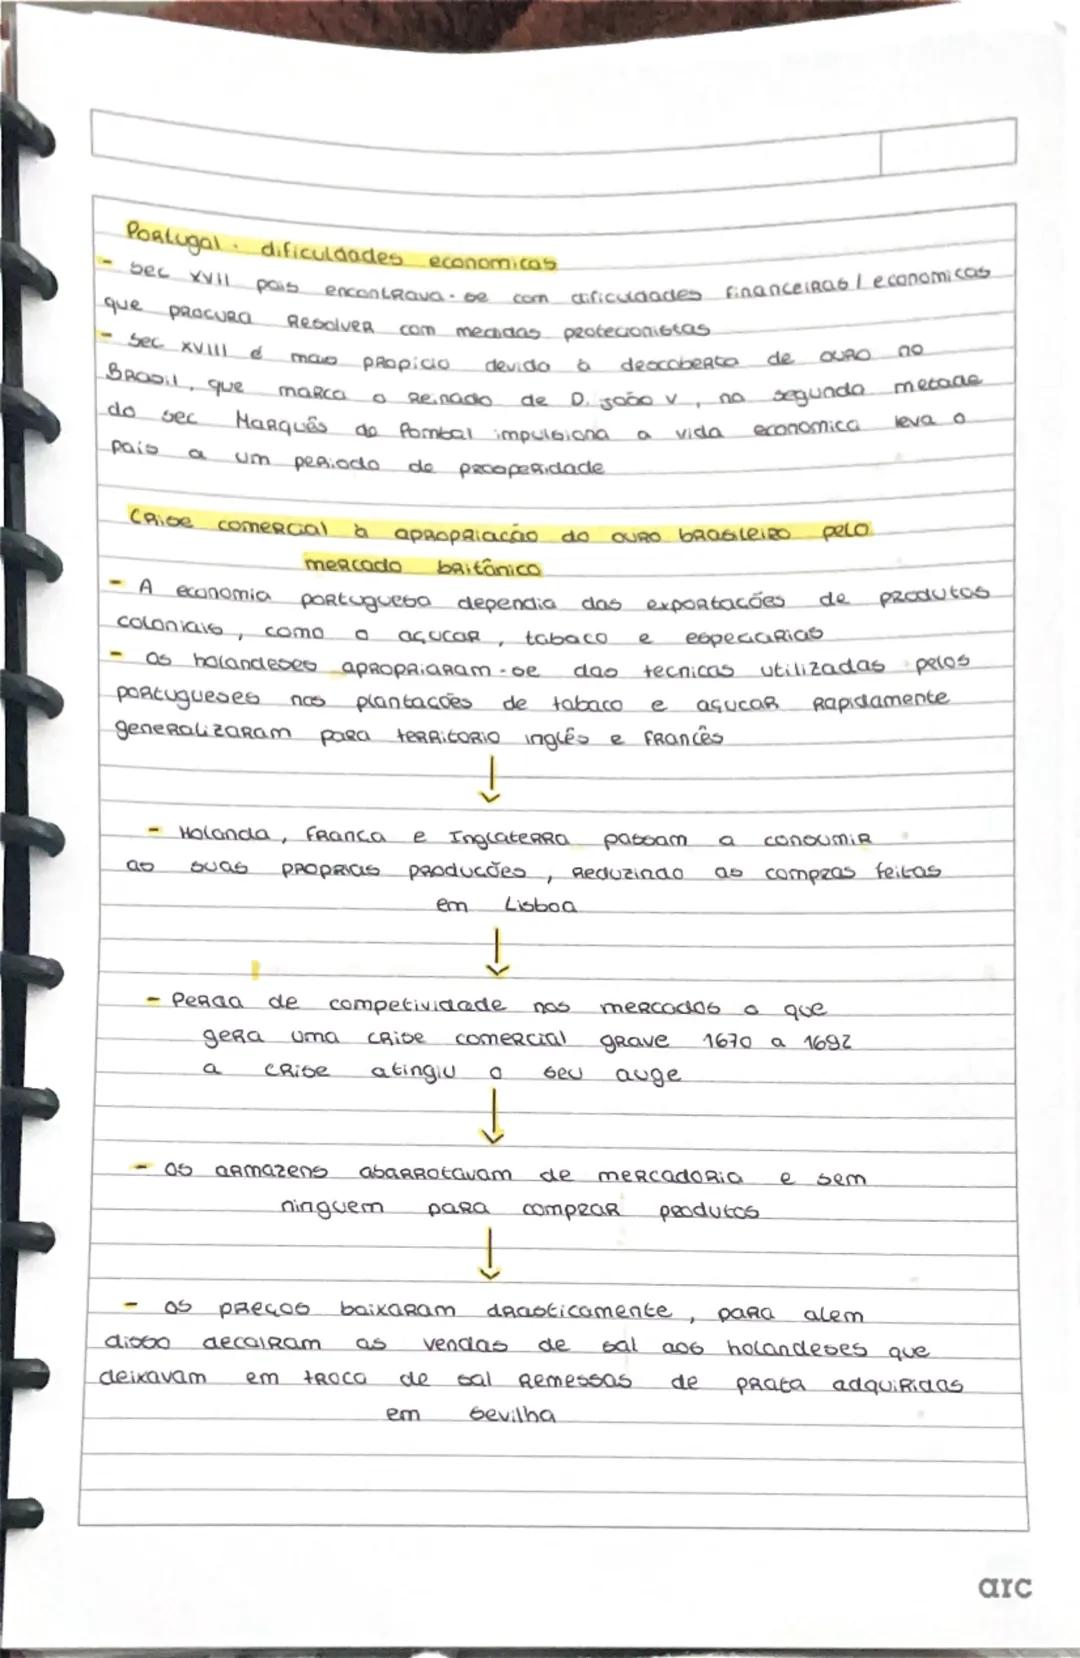 Portugal. dificuldades economicas
- Sec XVII pais encontrava-se com dificuldades financeiras / economicas
que procura resolver com medidas protecionistas
- Sec XVIII é mais propicio devido à descoberta de ouro no
Brasil, que marca o reinado de D. João V, na segunda metade
do sec Marquês de Pombal impulsiona a vida economica leva o
pais a um periodo de prosperidade
Crise comercial à apropriacão do ouro brasileiro pelo
mercado britânico
- A economia portuguesa dependia das exportacões de produtos
coloniais, como o açucar, tabaco e especiarias
- os holandeses apropriaram-se das tecnicas utilizadas pelos
portugueses nas plantacões de tabaco e açucar rapidamente
generalizaram para territorio inglês e francês
↓
- Holanda, Franca e Inglaterra passam a consumir
as suas proprias producões, reduzindo as compras feitas
em Lisboa
↓
- Perda de competividade nos mercados o que
gera uma crise comercial grave 1670 a 1692
a crise atingiu o seu auge
↓
- os armazens abarrotavam de mercadoria e sem
ninguem para comprar produtos
↓
- os preços baixaram drasticamente, para alem
disso decairam as vendas de sal aos holandeses que
deixavam em troca de sal remessas de prata adquiridas
em Sevilha
arc